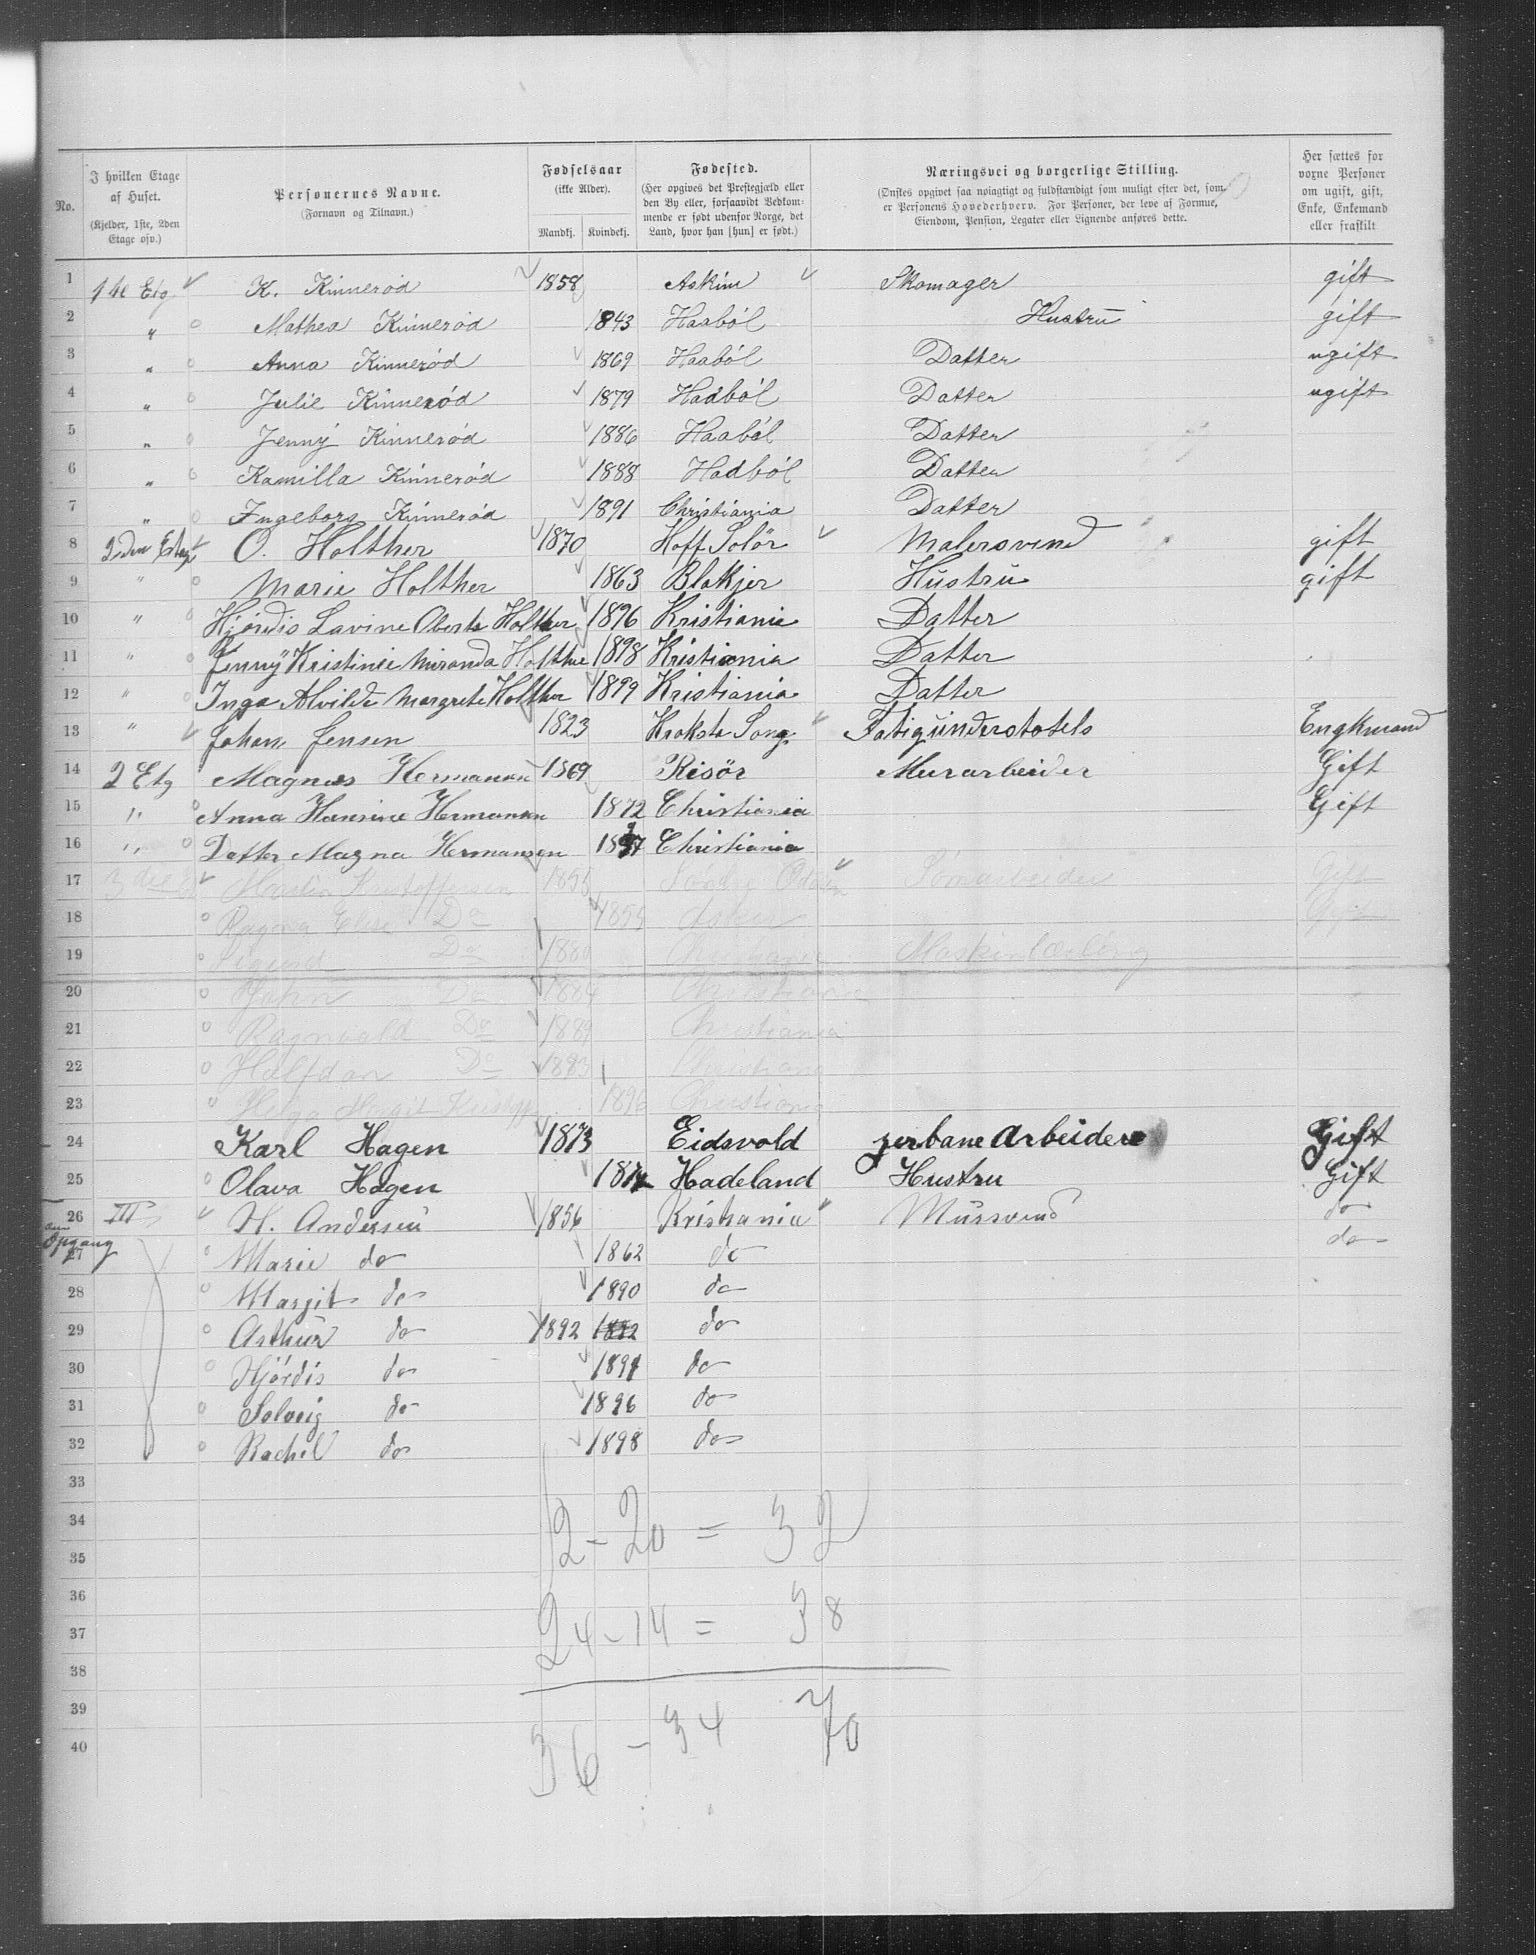 No. | I hvilken Etage af Huset. (Kjelder, 1ste, 2den Etage osv.) | Personernes Navne. (Fornavn og Tilnavn.) | Fødselsaar (ikke Alder). Mandkj. Kvindekj. | Fødested. (Her opgives det Prestegjæld eller den By eller, forsaavidt Vedkommende er født udenfor Norge, det Land, hvor han [hun] er født.) | Næringsvei og borgerlige Stilling. (Ønskes opgivet saa nøiagtigt og fuldstændigt som muligt efter det, som er Personens Hovederhverv. For Personer, der leve af Formue, Eiendom, Pension, Legater eller Lignende anføres dette. | Her sættes for voxne Personer om ugift, gift, Enke, Enkemand eller fraskilt
1 1ste Etg. K. Kinnerød 1858 Askim Skomager gift
2 " Mathea Kinnerød 1843 Haabøl Hustru gift
3 " Anna Kinnerød 1869 Haabøl Datter ugift
4 " Julie Kinnerød 1879 Haabøl Datter ugift
5 " Jenny Kinnerød 1886 Haabøl Datter
6 " Kamilla Kinnerød 1888 Haabøl Datter
7 " Ingeborg Kinnerød 1891 Christiania Datter
8 2den Etage O. Holther 1870 Hoff Solør Malersvend gift
9 " Marie Holther 1863 Blakjer Hustru gift
10 " Hjørdis Lavine Oberta Holther 1896 Kristiania Datter
11 " Jenny Kristinie Miranda Holther 1898 Kristiania Datter
12 " Inga Alvilde Margrete Holther 1899 Kristiania Datter
13 " Johan Jensen 1823 Kraksta Song. Fatigunderstotels Engkmand
14 2 Etg Magnus Hermansen 1869 Risör Murarbeider Gift
15 " Anna Hansine Hermansen 1872 Christiania Gift
16 " Datter Magna Hermansen 1897 Christiania
17 Martin Kristoffersen 1855 Søndre Odalen Tømarbeider Gift
18 Ragna Elise Do 1855 Askim Gift
19 Sigurd Do 1880 Christiania Maskinlærling
20 John Do 1884 Christiania
21 Ragnvald Do 1889 Christiania
22 Halfdan Do 1893 Christiania
23 Helga Margit 1896 Christiania
24 Karl Hagen 1873 Eidsvold jerbane Arbeidere Gift
25 Olava Hagen 1874 Hadeland Hustru Gift
26 III H. Andersen 1856 Kristiania Mursvend do
27 Opgang Marie do 1862 do do
28 Margit do 1890 do
29 Arthur do 1892 1892 do
30 Hjørdis do 1894 do
31 Solveig do 1896 do
32 Rachel do 1898 do
33
34 12 - 20 = 32
35
36
37 24 - 14 = 38
38
39 36 - 34 70
40